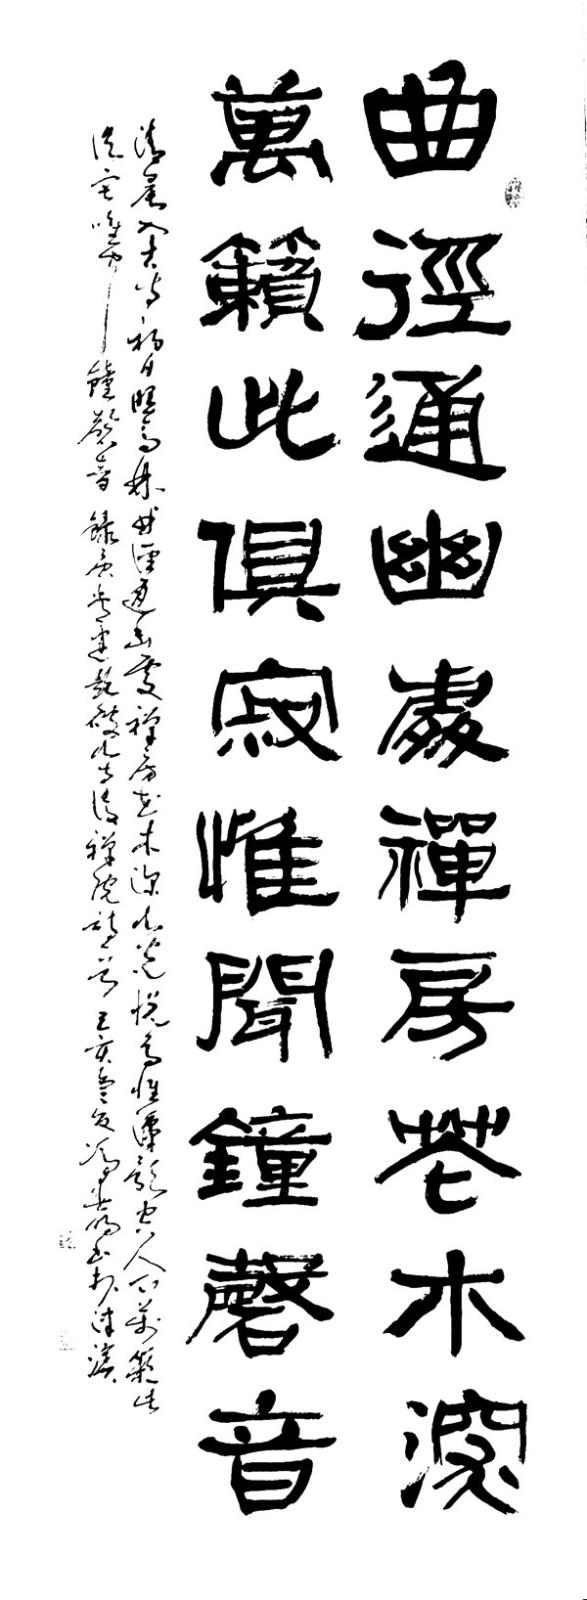 曲徑通幽處禪房花木深
萬籟此俱寂惟聞鐘磬音
清晨入古寺初日照高林曲徑通幽處禪房花木深山光悅鳥性潭影空人心萬籟此
俱寂唯聞鐘磬音 錄唐常建題破山寺後禪院詩一首